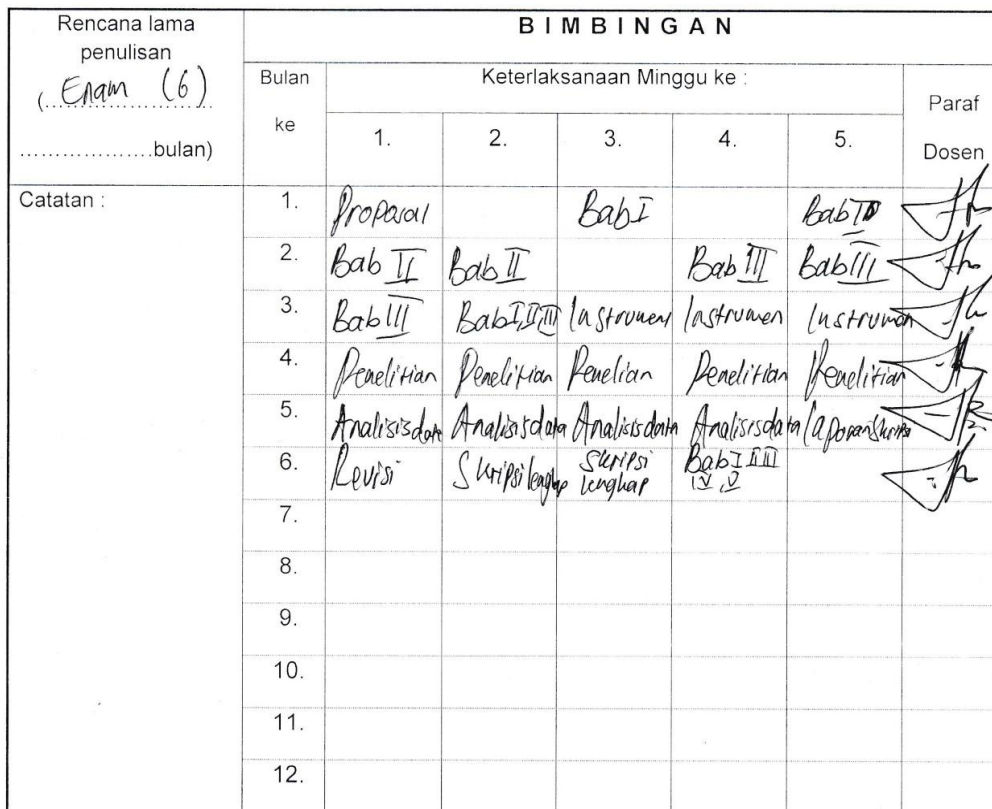 Rencana lama
penulisan
( Enam (6)
....................bulan)
BIMBINGAN
Bulan
ke
Keterlaksanaan Minggu ke :
Paraf
Dosen
1. 2. 3. 4. 5.
Catatan :
1. Proposal Bab I Bab II
2. Bab II Bab II Bab III Bab III
3. Bab III Bab I,II,III Instrumen Instrumen Instrumen
4. Penelitian Penelitian Penelian Penelitian Penelitian
5. Analisis data Analisis data Analisis data Analisis data Laporan Skripsi
6. Revisi Skripsi lengkap Skripsi lengkap Bab I II III IV, V
7.
8.
9.
10.
11.
12.